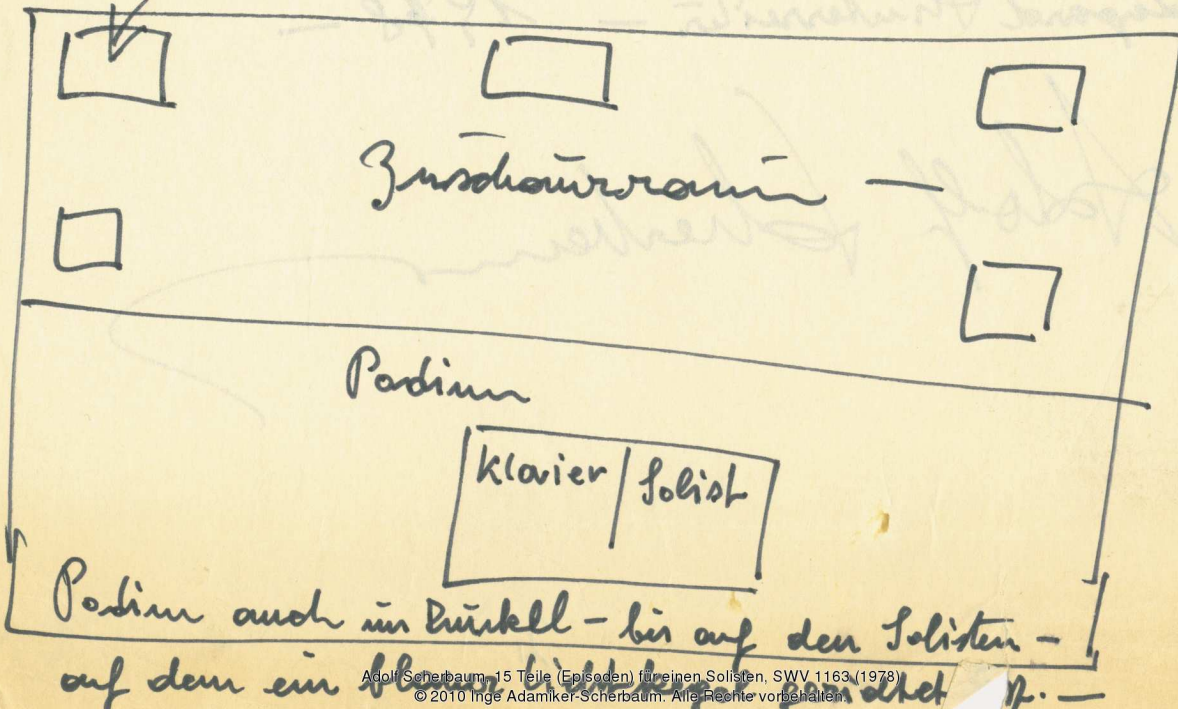 Zuschauerraum —
Podium
Klavier
Solist
Podium auch im Dunkel - bis auf den Solisten -
auf dem ein gerichtet ist. —
Adolf Scherbaum, 15 Teile (Episoden) für einen Solisten, SWV 1163 (1978)
© 2010 Inge Adamiker-Scherbaum. Alle Rechte vorbehalten.